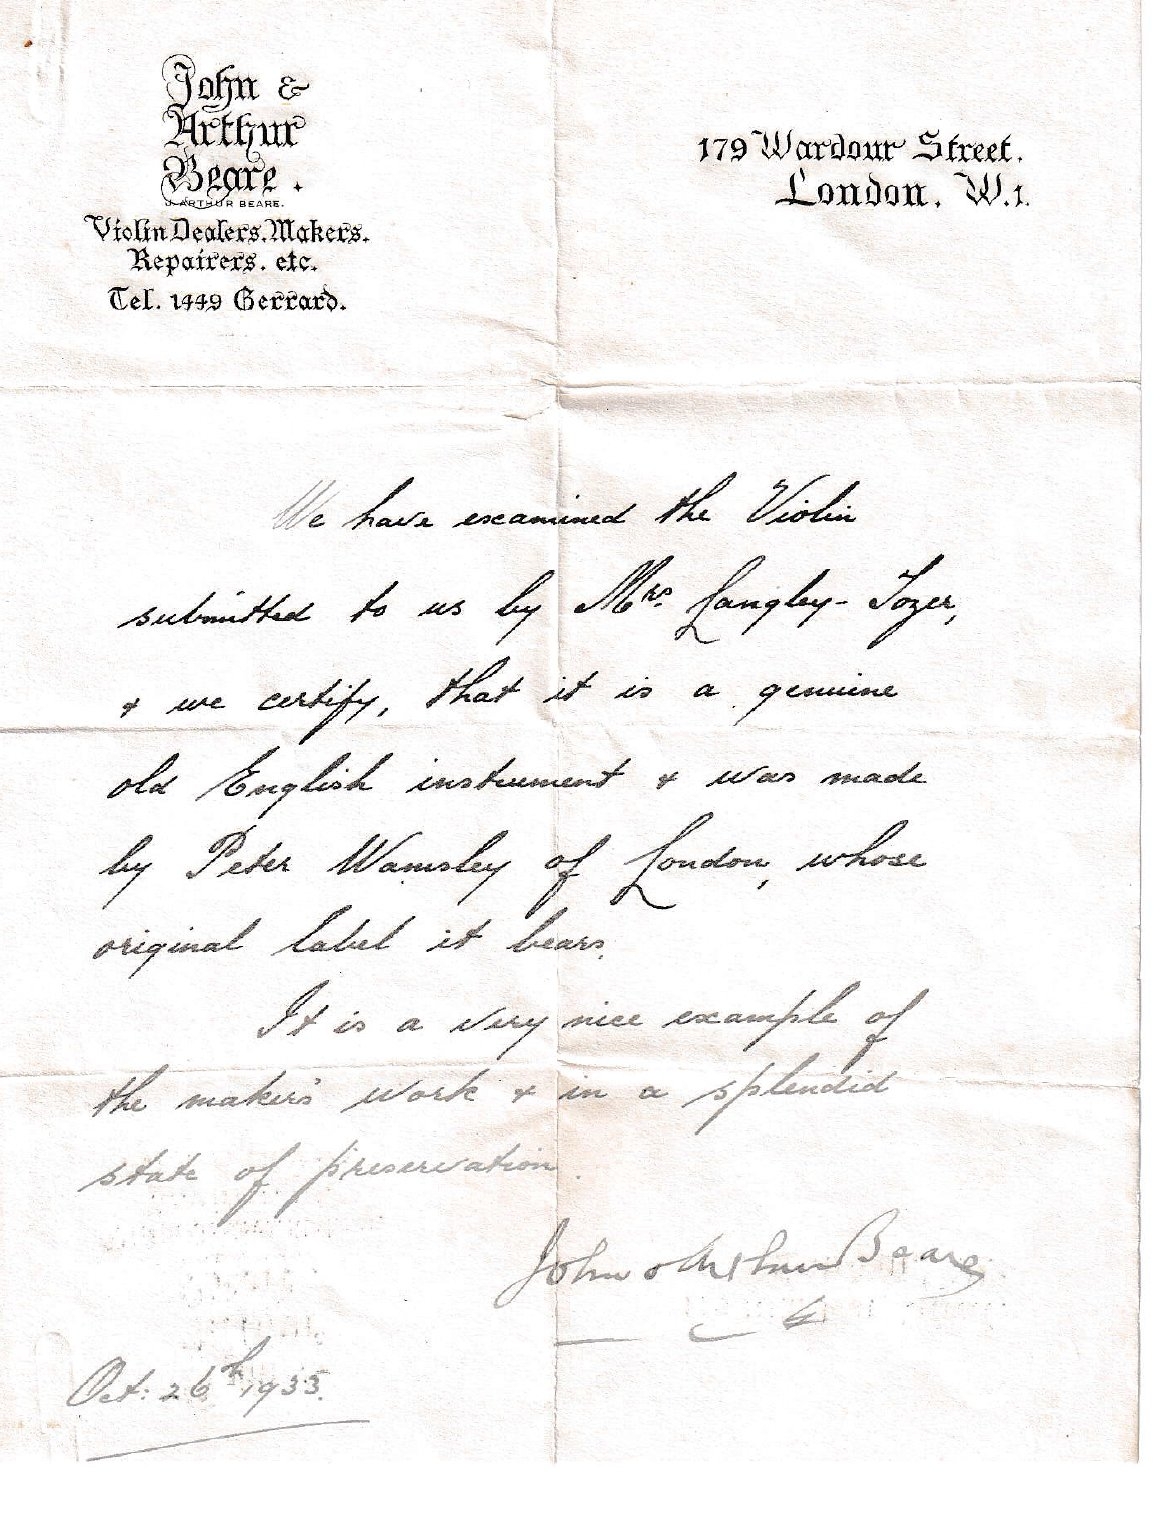 John &
Arthur
Beare.
J. ARTHUR BEARE.
Violin Dealers. Makers.
Repairers. etc.
Tel. 1449 Gerrard.
179 Wardour Street.
London. W.1.
We have examined the Violin
submitted to us by Mrs. Langley-Tozer,
& we certify, that it is a genuine
old English instrument & was made
by Peter Wamsley of London, whose
original label it bears.
It is a very nice example of
the maker's work & in a splendid
state of preservation.
John & Arthur Beare
Oct: 26th, 1933.